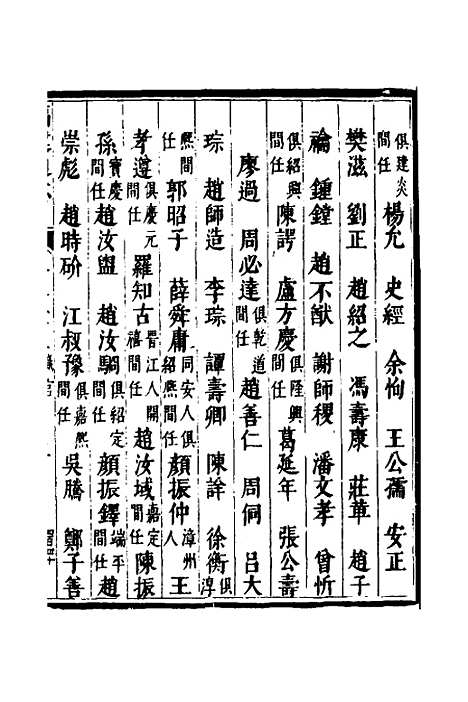 俱建炎間任楊允 史經 余恂 王公孺 安正
樊滋 劉正 趙紹之 馮壽康 莊華 趙子
論 鍾鏜 趙不猷 謝師稷 潘文孝 曾忻
俱紹興間任陳諤 盧方慶俱隆興間任葛延年 張公壽
廖過 周必達俱乾道間任趙善仁 周侗 呂大
琮 趙師造 李琮 譚壽卿 陳詮 徐衡俱淳
熙間任郭昭子 薛舜庸同安人俱紹熙間任顔振仲漳州人王
孝遵俱慶元間任羅知古晉江人開禧間任趙汝域嘉定間任陳振
孫寶慶間任趙汝盥 趙汝騆俱紹定間任顔振鐸端平間任趙
崇彪 趙時砎 江叔豫俱嘉熙間任吳騰 鄭子善